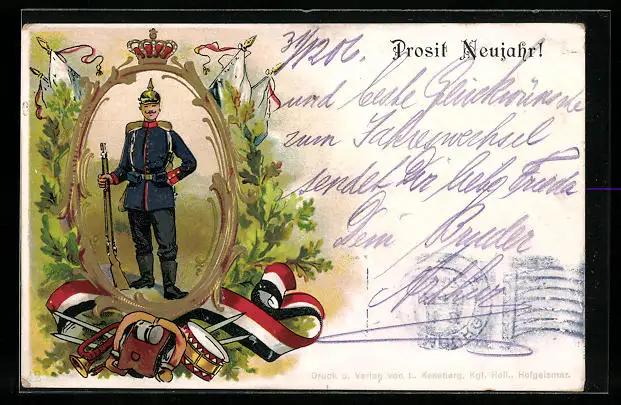 31/12 06.
Prosit Neujahr!
und beste Glückwünsche
zum Jahreswechsel
sendet Dir liebe Frieda
Dein Bruder
Druck u. Verlag von L. Keseberg, Kgl. Hofl., Hofgeismar.